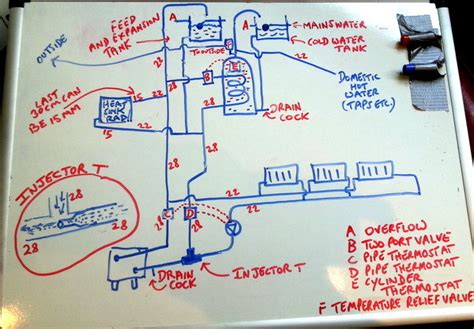 A
A
FEED
AND EXPANSION
TANK
MAINS WATER
COLD WATER
TANK
OUTSIDE
TO OUTSIDE
F
E
B
22
22
28
28
DOMESTIC
HOT
WATER
(TAPS ETC.)
LAST
30CM CAN
BE 15MM
HEAT
SINK
RAD
15
15
22
22
DRAIN
COCK
28
28
INJECTOR T
28
28
28
22
22
28
C
D
28
DRAIN
COCK
INJECTOR T
A OVERFLOW
B TWO PORT VALVE
C PIPE THERMOSTAT
D PIPE THERMOSTAT
E CYLINDER
THERMOSTAT
F TEMPERATURE RELIEF VALVE